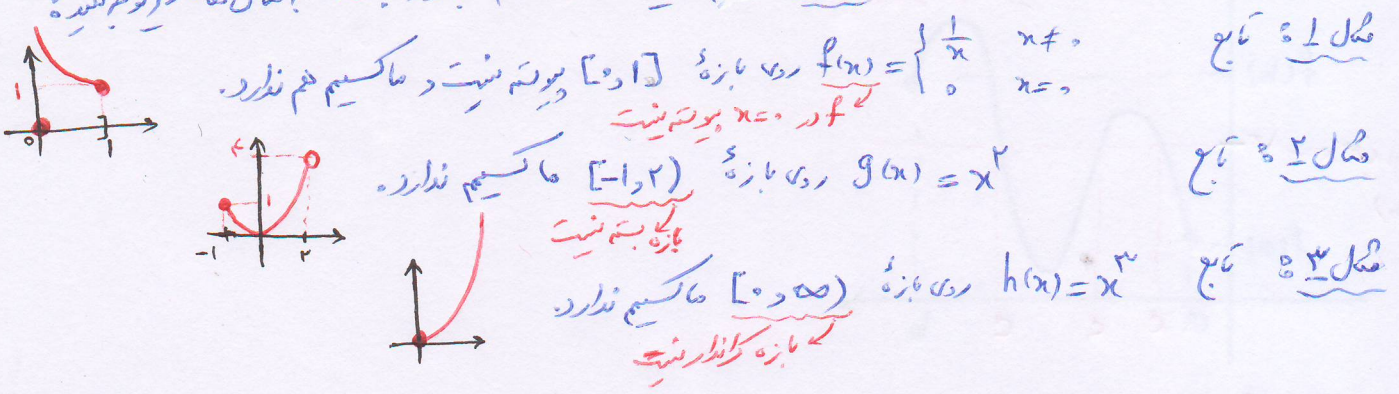 مثال ۱: تابع f(x) = { 1/x x≠۰ , ۰ x=۰ روی بازهٔ [۰,۱] پیوسته نیست و ماکسیمم هم ندارد.
f در x=۰ پیوسته نیست
مثال ۲: تابع g(x) = x^۲ روی بازهٔ [-۱,۲) ماکسیمم ندارد.
بازه بسته نیست
مثال ۳: تابع h(x) = x^۳ روی بازهٔ [۰,∞) ماکسیمم ندارد.
بازه کراندار نیست